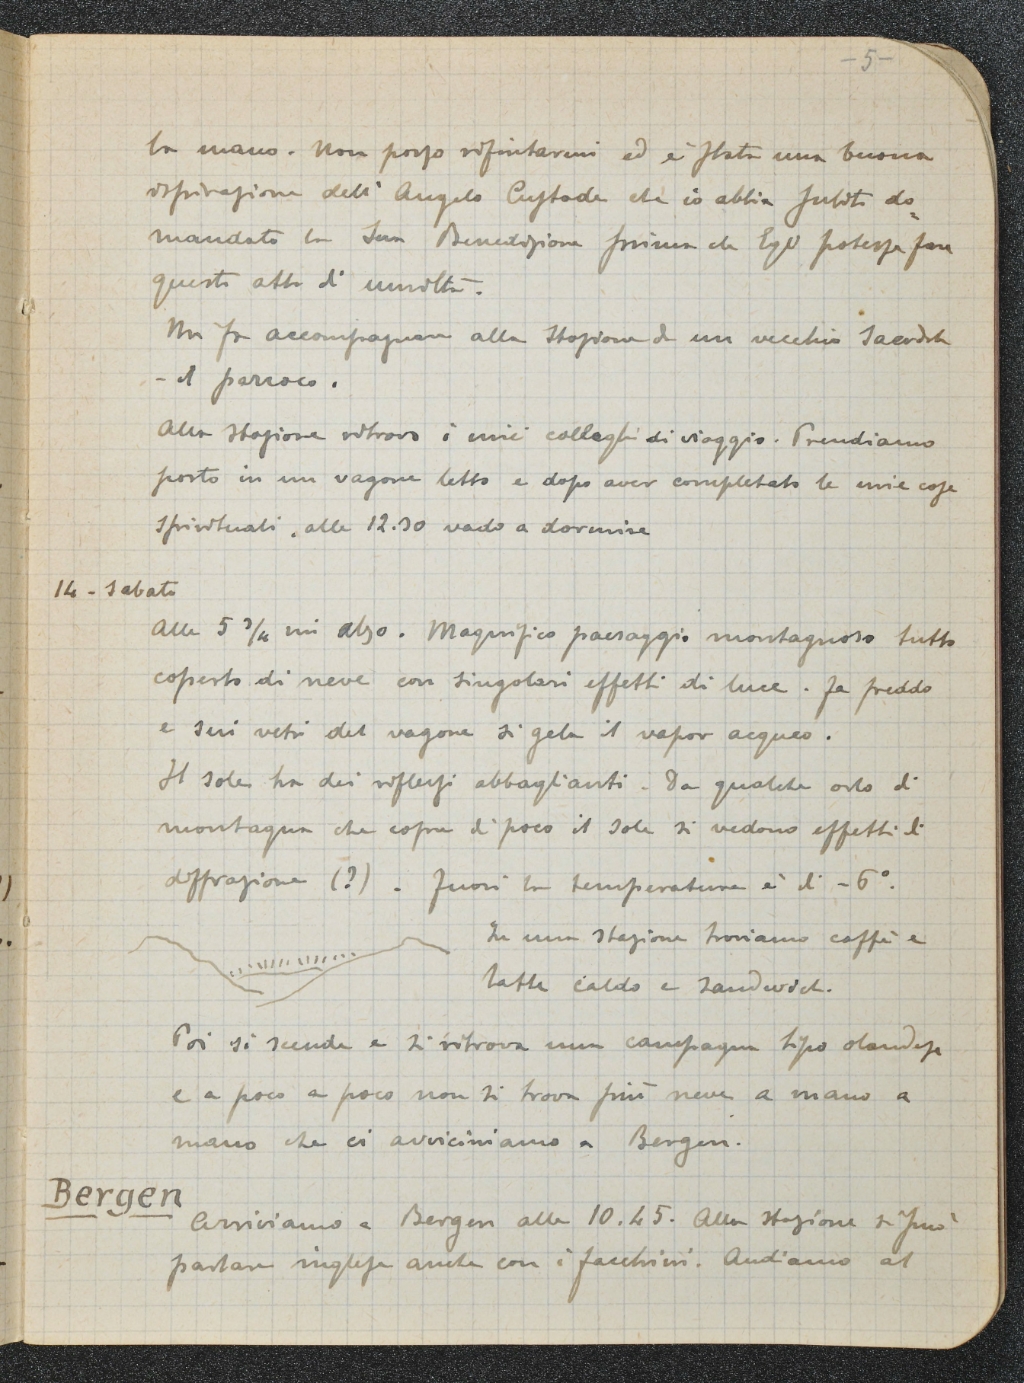 -5-
la mano. Non posso rifiutarmi ed è stata una buona
ispirazione dell'Angelo Custode che io abbia subito do-
mandato la Sua Benedizione prima che Egli potesse fare
questo atto di umiltà.
Mi fa accompagnare alla stazione da un vecchio Sacerdote
- il parroco.
Alla stazione ritrovo i miei colleghi di viaggio. Prendiamo
posto in un vagone letto e dopo aver completato le mie cose
spirituali, alle 12.30 vado a dormire
14 - Sabato
Alle 5 3/4 mi alzo. Magnifico paesaggio montagnoso tutto
coperto di neve con singolari effetti di luce. Fa freddo
e sui vetri del vagone si gela il vapor acqueo.
Il sole ha dei riflessi abbaglianti. Da qualche orlo di
montagna che copre di poco il sole si vedono effetti di
diffrazione (?). Fuori la temperatura è di -6°.
In una stazione troviamo caffè e
latte caldo e sandwich.
Poi si scende e si ritrova una campagna tipo olandese
e a poco a poco non si trova più neve a mano a
mano che ci avviciniamo a Bergen.
Bergen
Arriviamo a Bergen alle 10.45. Alla stazione si può
parlare inglese anche con i facchini. Andiamo al